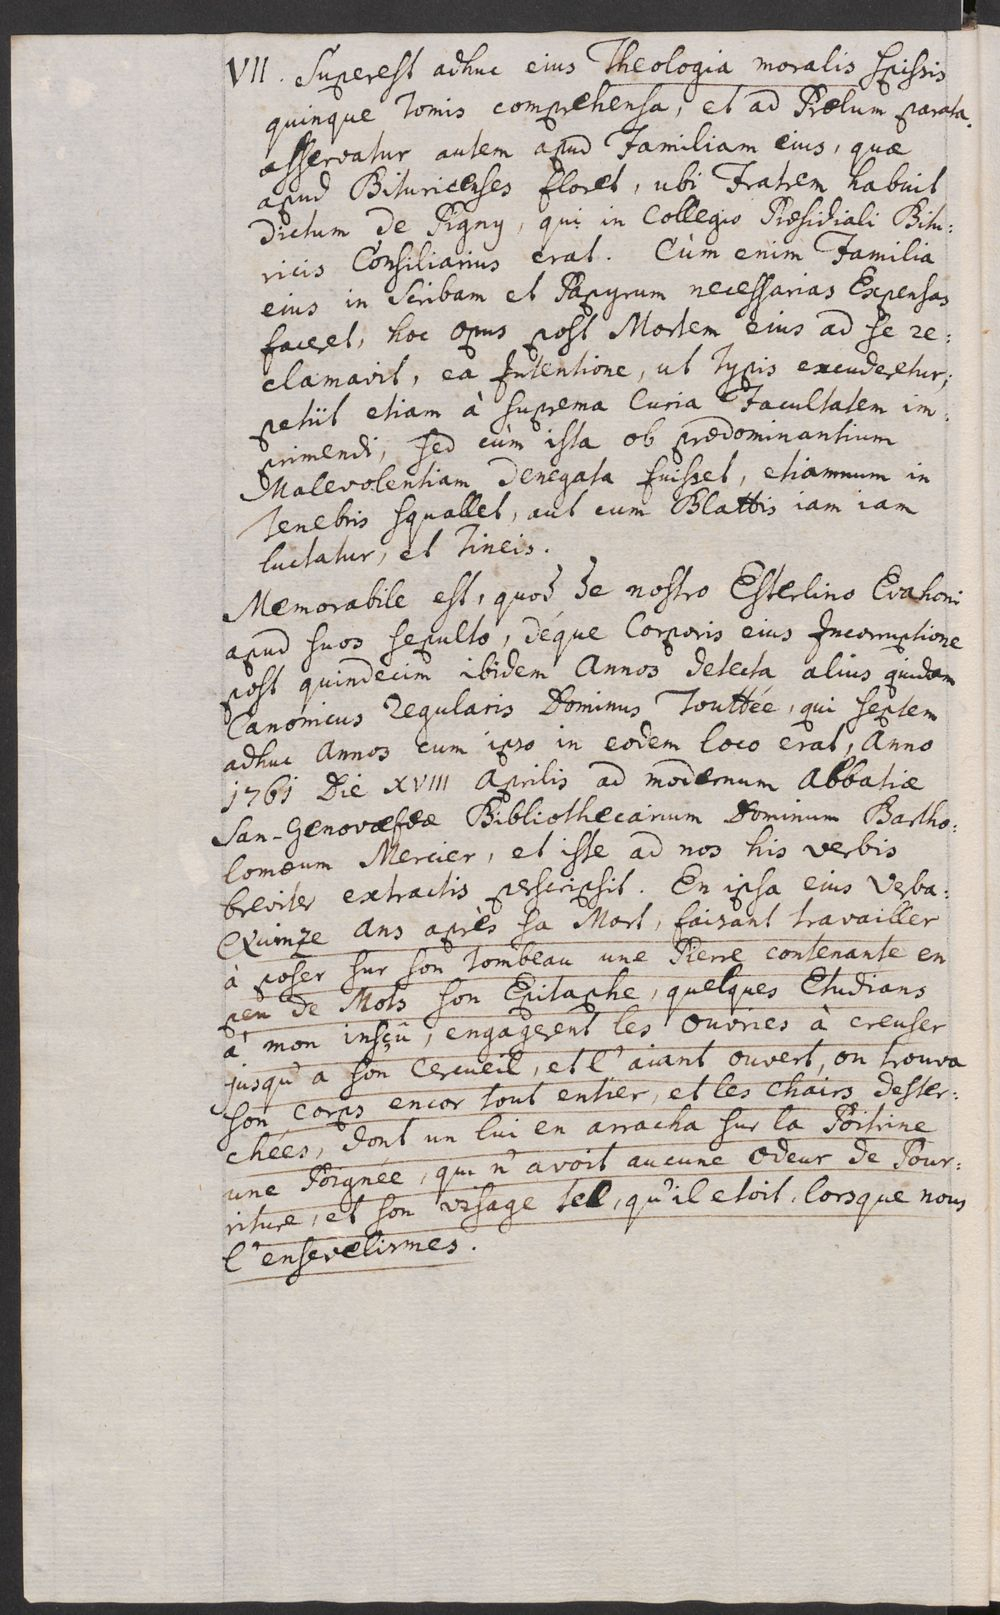 VII. Superest adhuc eius Theologia moralis spissis
quinque Tomis comprehensa, et ad Prælum parata.
asservatur autem apud Familiam eius, quæ
apud Bituricenses floret, ubi Fratrem habuit
dictum de Pigny, qui in Collegio Præsidiali Bitu:
ricis Consiliarius erat. Cùm enim Familia
eius in Scribam et Papyrum necessarias Expensas
faceret, hoc opus post Mortem eius ad se re:
clamavit, ea Intentione, ut Typis excuderetur;
petiit etiam à suprema Curia Facultatem im:
primendi, sed cùm ista ob prædominantium
Malevolentiam denegata fuisset, etiamnum in
Tenebris squallet, aut cum Blattis iam iam
luctatur, et Tineis.
Memorabile est, quod de nostro Esterlino Evahoni
apud suos sepulto, déque Corporis eius Incorruptione
post quindecim ibidem Annos detecta alius quidam
Canonicus Regularis Dominus Touttée, qui septem
adhuc Annos cum ipso in eodem loco erat, Anno
1761 Die XVIII Aprilis ad modernum Abbatiæ
San-Genovefeæ Bibliothecarium Dominum Bartho:
lomæum Mercier, et iste ad nos his verbis
breviter extractis perscripsit. En ipsa eius Verba:
Quinze Ans après sa Mort, faisant travailler
à poser sur son tombeau une Pierre contenante en
peu de Mots son Epitaphe, quelques Etudians
à mon insçû, engagerent les ouvries à creuser
jusqu'a son Cercueil, et l'aiant ouvert, on trouva
son corps encor tout entier, et les chairs desser:
chées, dont un lui en arracha sur la Poitrine
une Poignée, qui n'avoit aucune Odeur de Pour:
riture, et son visage tel, qu'il etoit, lorsque nous
l'ensevelismes.